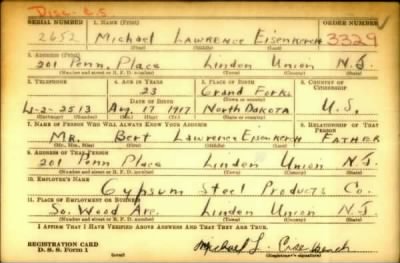 Disc. E.S.
SERIAL NUMBER 1. NAME (Print) ORDER NUMBER
2652 Michael Lawrence Eisenkerch 3329
(First) (Middle) (Last)
2. ADDRESS (Print)
201 Penn. Place Linden Union N.J.
(Number and street or R. F. D. number) (Town) (County) (State)
3. TELEPHONE 4. AGE IN YEARS 5. PLACE OF BIRTH 6. COUNTRY OF CITIZENSHIP
23 Grand Forks
DATE OF BIRTH
Li-2-2513 Aug. 17 1917 North Dakota U.S.
(Exchange) (Number) (Mo.) (Day) (Yr.) (State or country)
7. NAME OF PERSON WHO WILL ALWAYS KNOW YOUR ADDRESS 8. RELATIONSHIP OF THAT PERSON
Mr. Bert Lawrence Eisenkerch Father
(Mr., Mrs., Miss) (First) (Middle) (Last)
9. ADDRESS OF THAT PERSON
201 Penn Place Linden Union N.J.
(Number and street or R. F. D. number) (Town) (County) (State)
10. EMPLOYER'S NAME
Gypsum Steel Products Co.
11. PLACE OF EMPLOYMENT OR BUSINESS
So. Wood Ave. Linden Union N.J.
(Number and street or R. F. D. number) (Town) (County) (State)
I AFFIRM THAT I HAVE VERIFIED ABOVE ANSWERS AND THAT THEY ARE TRUE.
REGISTRATION CARD
D. S. S. Form 1
Michael L.
(Registrant's signature)